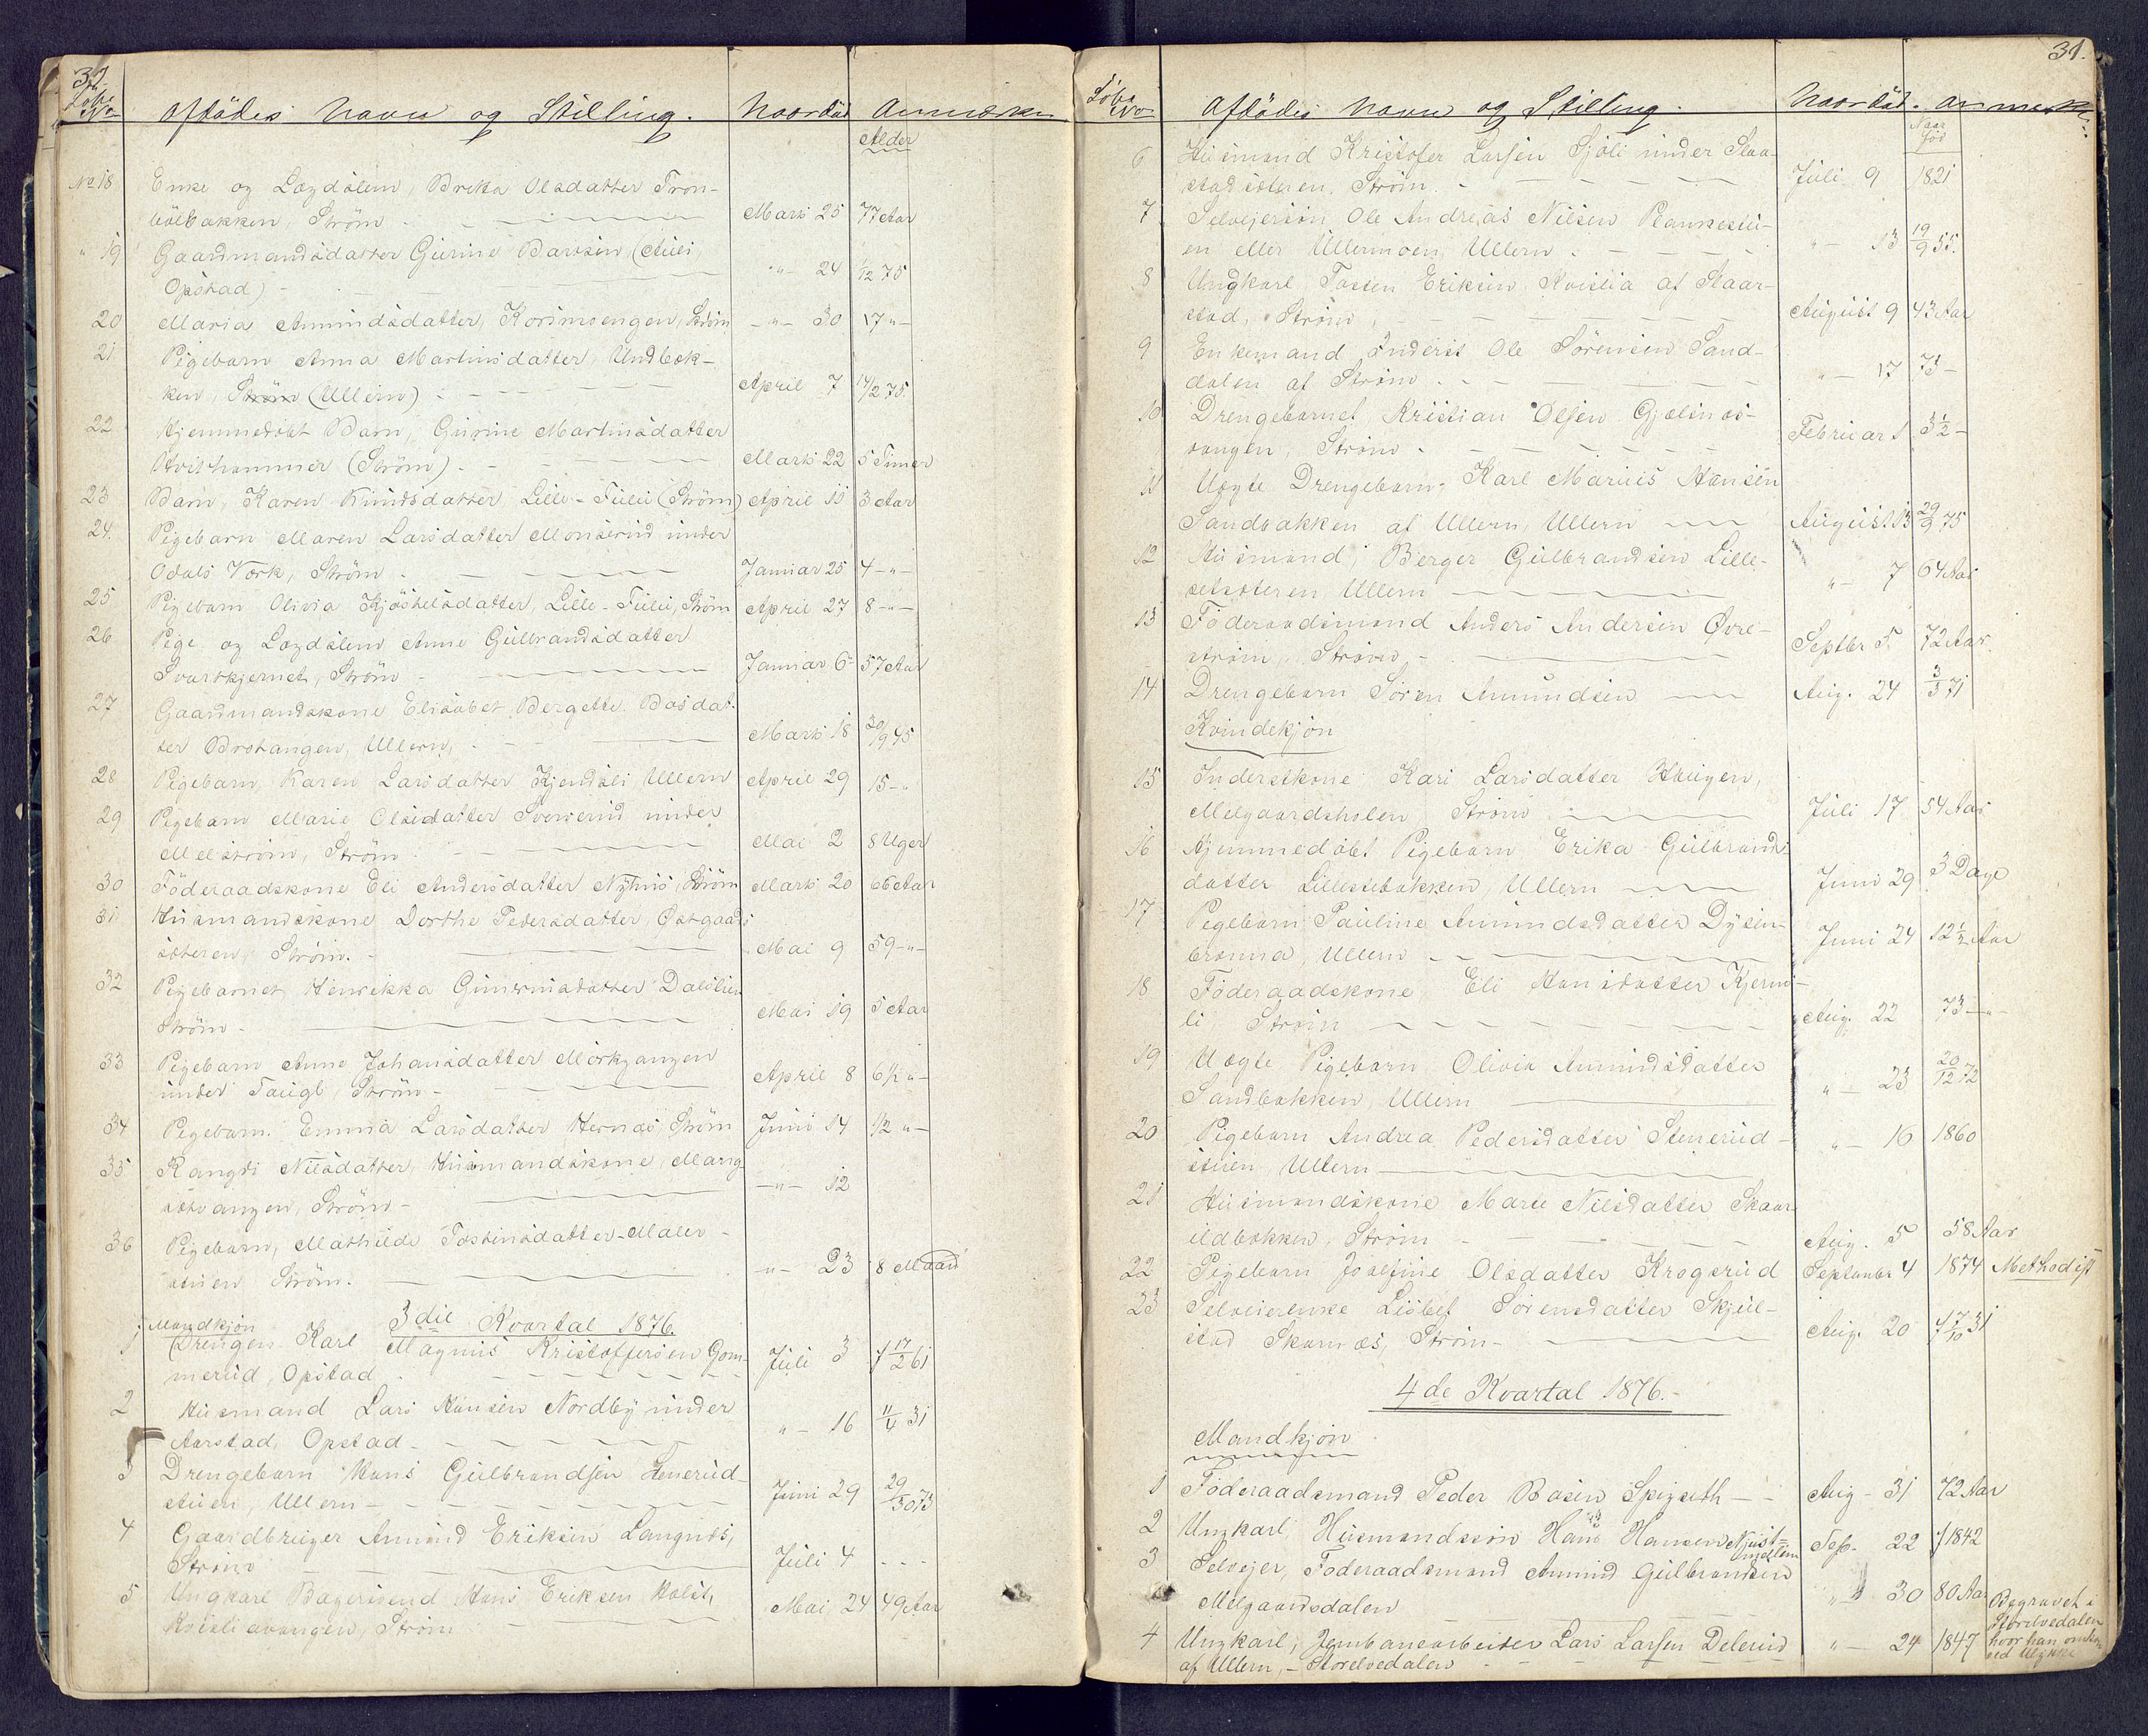 Løbe No Afdødes Navn og Stilling. Naar død Anmærkn
Alder
No 18 Enke og Lægdslem, Brekka Olsdatter Tron-
bølbakken, Strøm Mars 25 77 Aar
" 19 Gaardmandsdatter Gurine
Opstad) - "- 24 1/12 75
20 Maria Amundsdatter, Korsmoengen, Strøm -"- 30 17 "-
21 Pigebarn Anna Martinsdatter Undbek-
ken, Strøm (Ullern) - April 7 14/2 75.
22 Hjemmedøbt Barn, Gurine Martinsdatter
Kvithammer (Strøm). - Mars 22 5 Timer
23 Barn, Karen Knudsdatter Lille-Fuluu (Strøm) April 11 3 Aar
24. Pigebarn Maren Larsdatter Monserud under
Odals Værk, Strøm. Januar 25 4 -"-
25 Pigebarn Olivia Kjøstelsdatter, Lille-Fuluu, Strøm April 27 8 -"-
26 Pige og Lægdslem Anne Gulbrandsdatter
Svartkjernet, Strøm - Januar 6 57 Aar
27 Gaardmandskone Elisabet Bergette Bosdat-
ter Brohangen, Ullern, Mars 18 30/9 45
28 Pigebarn Karen Larsdatter Kjendsli, Ullern April 29 15 -"
29 Pigebarn Marie Olsdatter Sverserud under
Melstrøm, Strøm Mai 2 8 Uger
30 Føderaadskone Eli Andersdatter Nyhus, Strøm Mars 20 66 Aar
31 Husmandskone Dorthe Pedersdatter, Østgaads
æteren, Strøm. - Mai 9 59 -"-
32 Pigebarnet Henrikka Gunersdatter Dalslien
Strøm - Mai 19 5 Aar
33 Pigebarn Anne Johansdatter Mørkgangen
under Taugl, Strøm - April 8 6 1/2 "-
34 Pigebarn. Emma Larsdatter Hernæs Strøm Juni 14 1/2 "-
35 Rangdi Nilsdatter, Husmandskone, Mang
setvangen, Strøm - -"- 12
36 Pigebarn, Mathilde Tostensdatter-Maler-
stuen Strøm. "- 23 8 Maan
3die Kvartal 1876.
Mandkjøn
1 Drengen Karl Magnus Kristoffersen Gom-
merud, Opstad Juli 3 f 17/2 61
2 Husmand Lars Hansen Nordby under
Aarstad, Opstad - "- 16 11/4 31
3 Drengebarn Hans Gulbrandsen Stenerud-
stuen, Ullern - Juni 29
4 Gaardbruger Amund Eriksen Langnæs,
Strøm Juli 4 - - -
5 Ungkarl Bagersvend Hans Eriksen Holst,
Kvisliavangen, Strøm Mai 24 49 Aar
31.
Løbe No Afdødes Navn og Stilling. Naar død. Anmerk
Naar fød
6 Husmand Kristofer Larsen Sjøli under Staa-
stad Strøm. - Juli 9 1821
7 Selvejersøn Ole Andreas Nilsen Plankestu-
en eller Ullernmoen, Ullern. "- 13 19/9 55.
8 Ungkarl Tosten Eriksen, Kvislia af Skaar-
stad, Strøm, August 9 43 Aar
9 Enkemand Inderst Ole Sørensen Sand-
dalen af Strøm. - "- 17 73 -
10 Drengebarnet Kristian Olsen Gjølsnæs-
vangen, Strøm - Februar 1 3 1/2 -
11 Uægte Drengebarn, Karl Marius Hansen
Sandbakken af Ullern, Ullern August 13 29/9 75
12 Husmand, Berger Gulbrandsen Lille-
setsæteren Ullern "- 7 64 Aar
13 Føderaadsmand Anders Andersen Øvre-
strøm, Strøm - Septbr 5. 72 Aar.
14 Drengebarn Søren Amundsen Aug. 24 3/3 71
Kvindekjøn
15 Inderstkone Kari Larsdatter Haugen,
Melgaardsholen Strøm Juli 17 54 Aar
16 Hjemmedøbt Pigebarn Erika Gulbrands-
datter Lillesetbakken, Ullern Juni 29 3 Dage
17 Pigebarn Pauline Amundsdatter Dysen-
brønna, Ullern Juni 24 12 1/2 Aar
18 Føderaadskone, Eli Hansdatter Kjerns-
li, Strøm Aug. 22 73 -"-
19 Uægte Pigebarn Olivia Amundsdatter
Sandbakken, Ullern "- 23 20/12 72
20 Pigebarn Andrea Pedersdatter Stenerud-
stuen Ullern "- 16 1860
21 Husmandskone Marie Nilsdatter Skaar-
ildbakken, Strøm Aug. 5 58 Aar
22 Pigebarn Josefine Olsdatter Krogsrud September 4 1874 Methodist
23 Selveierenke Lisbet Sørensdatter Skjul-
stad Skarnæs, Strøm - Aug. 20 f 7/10 31
4de Kvartal 1876.-
Mandkjøn
1 Føderaadsmand Peder Bosen Spigseth - - Aug - 31 72 Aar
2 Ungkarl, Husmandssøn Hans Hansen Sep. 22 f 1842
3 Selvejer, Føderaadsmand Amund Gulbrandsen
Melgaardsdalen "- 30 80 Aar
4 Ungkarl, Jernbanearbeider Lars Larsen Delerud "- 24 1847
af Ullern, - Storelvedalen
Begravet i
Storelvedalen
hvor han omkom
ved Ulykke